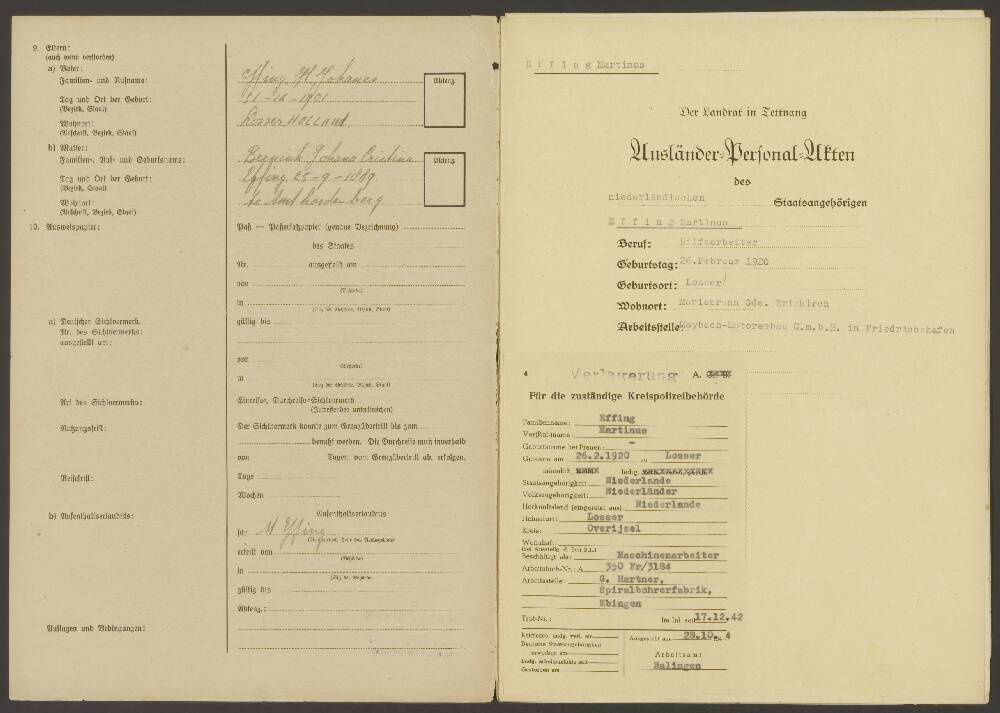 9. Eltern:
(auch wenn verstorben)
a) Vater:
Familien- und Rufname:
Tag und Ort der Geburt:
(Bezirk, Staat)
Wohnort:
(Anschrift, Bezirk, Staat)
b) Mutter:
Familien-, Ruf- und Geburtsname:
Tag und Ort der Geburt:
(Bezirk, Staat)
Wohnort:
(Anschrift, Bezirk, Staat)
10. Ausweispapier:
a) Deutscher Sichtvermerk
Nr. des Sichtvermerks:
ausgestellt am:
Art des Sichtvermerks:
Nutzungsfrist:
Reisefrist:
b) Aufenthaltserlaubnis:
Auflagen und Bedingungen:
Effing, Johanes
31-12-1901
Losser HOLLAND
Aktenz.
Johana Cristina
Effing 25-9-1889
Aktenz.
Paß — Paßersatzpapier (genaue Bezeichnung)
des Staates
Nr. ausgestellt am
von
(Behörde)
in
(Sitz der Behörde, Bezirk, Staat)
gültig bis
von
(Behörde)
in
(Sitz der Behörde, Bezirk, Staat)
Einreise, Durchreise-Sichtvermerk
(Zutreffendes unterstreichen)
Der Sichtvermerk konnte zum Grenzübertritt bis zum
benutzt werden. Die Durchreise muß innerhalb
von Tagen vom Grenzübertritt ab, erfolgen.
Tage
Wochen
Aufenthaltserlaubnis
M Effing
erteilt von
(Behörde)
in
(Sitz der Behörde)
gültig bis
Aktenz.:
Effing Martinus
Der Landrat in Tettnang
Ausländer-Personal-Akten
des
niederländischen Staatsangehörigen
Effing Martinus
Beruf: Hilfsarbeiter
Geburtstag: 26.Februar 1920
Geburtsort: Losser
Wohnort: Mariabrunn Gde. Eriskirch
Arbeitsstelle: Maybach-Motorenbau G.m.b.H. in Friedrichshafen
4 Verlagerung A.
Für die zuständige Kreispolizeibehörde
Familienname: Effing
Vor(Ruf-)name: Martinus
Geburtsname bei Frauen: -
Geboren am 26.2.1920 zu Losser
männlich, ledig,
Staatsangehörigkeit: Niederlande
Volkszugehörigkeit: Niederländer
Herkunftsland (eingereist aus): Niederlande
Heimatort: Losser
Kreis: Overijsel
Wohnhaft:
Beschäftigt als: Maschinenarbeiter
Arbeitsbuch-Nr.: A 350 Fr/3184
Arbeitsstelle: G. Hartner,
Spiralbohrerfabrik,
Ebingen
Im Inl. seit 17.12.42
Ausgestellt am 28.10. 4
Deutsche Staatsangehörigkeit
erworben am
Arbeitsamt
Balingen
Gestorben am